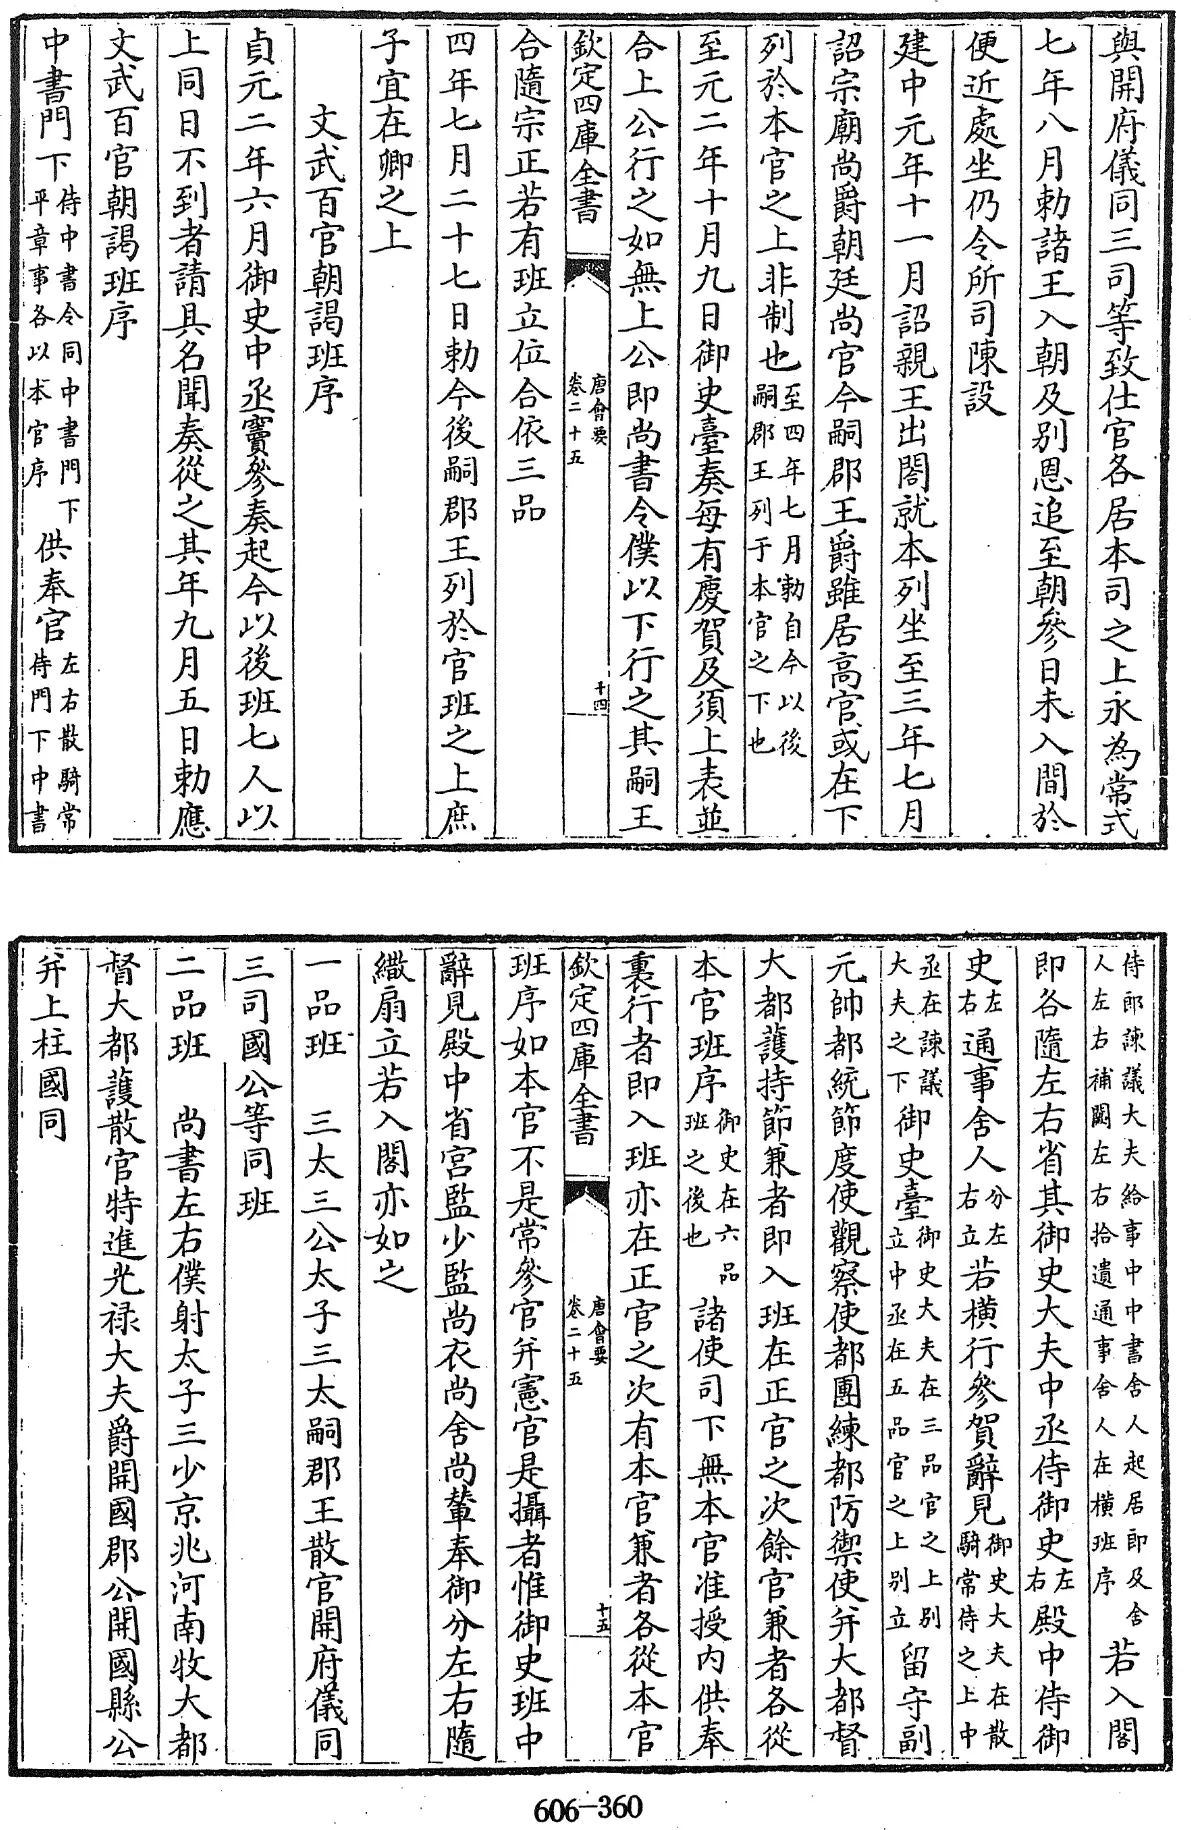 與開府儀同三司等致仕官各居本司之上永為常式
七年八月勅諸王入朝及别恩追至朝參日未入間於
便近處坐仍令所司陳設
建中元年十一月詔親王出閤就本列坐至三年七月
詔宗廟尚爵朝廷尚官今嗣郡王爵雖居高官或在下
列於本官之上非制也至四年七月勅自今以後嗣郡王列于本官之下也
至元二年十月九日御史臺奏每有慶賀及須上表並
合上公行之如無上公即尚書令僕以下行之其嗣王
欽定四庫全書 唐會要卷二十五 十四
合隨宗正若有班立位合依三品
四年七月二十七日勅今後嗣郡王列於官班之上庶
子宜在卿之上
文武百官朝謁班序
貞元二年六月御史中丞竇參奏起今以後班七人以
上同日不到者請具名聞奏從之其年九月五日勅應
文武百官朝謁班序
中書門下侍中書令同中書門下平章事各以本官序供奉官左右散騎常侍門下中書
侍郎諫議大夫給事中中書舍人起居郎及舍人左右補闕左右拾遺通事舍人在横班序若入閤
即各隨左右省其御史大夫中丞侍御史左右殿中侍御
史左右通事舍人分左右立若横行參賀辭見御史大夫在散騎常侍之上中
丞在諫議大夫之下御史臺御史大夫在三品官之上别立中丞在五品官之上别立留守副
元帥都統節度使觀察使都團練都防禦使幷大都督
大都護持節兼者即入班在正官之次餘官兼者各從
本官班序御史在六品班之後也諸使司下無本官准授内供奉
裏行者即入班亦在正官之次有本官兼者各從本官
欽定四庫全書 唐會要卷二十五 十五
班序如本官不是常參官幷憲官是攝者惟御史班中
辭見殿中省宮監少監尚衣尚舍尚輦奉御分左右隨
繖扇立若入閤亦如之
一品班 三太三公太子三太嗣郡王散官開府儀同
三司國公等同班
二品班 尚書左右僕射太子三少京兆河南牧大都
督大都護散官特進光禄大夫爵開國郡公開國縣公
幷上柱國同
606-360